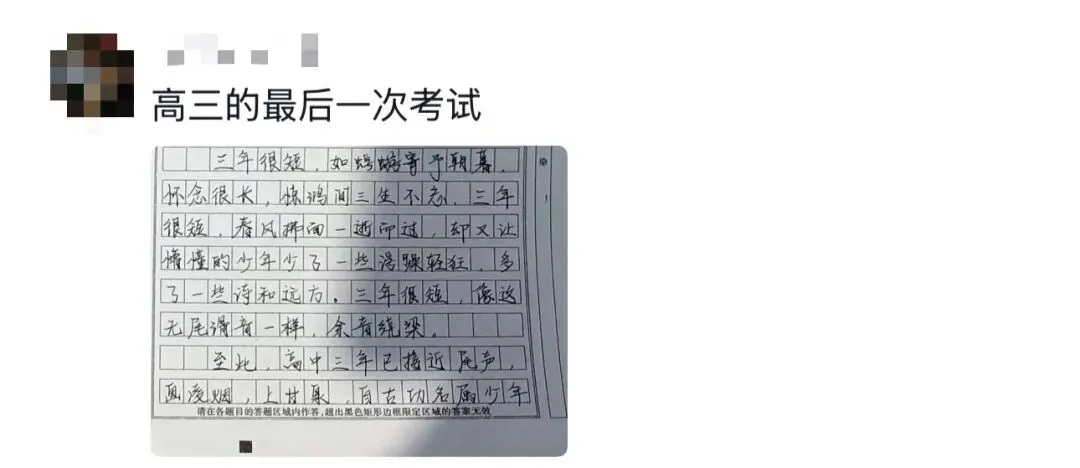 高三的最后一次考试
三年很短，如蜉蝣寄于朝暮，
怀念很长，惊鸿间三生不忘，三年
很短，春风拂面一逝而过，却又让
懵懂的少年少了一些浮躁轻狂，多
了一些诗和远方。三年很短，像这
无尾滑音一样，余音绕梁。
至此，高中三年已接近尾声，
画凌烟，上甘泉，自古功名属少年
请在各题目的答题区域内作答，超出黑色矩形边框限定区域的答案无效